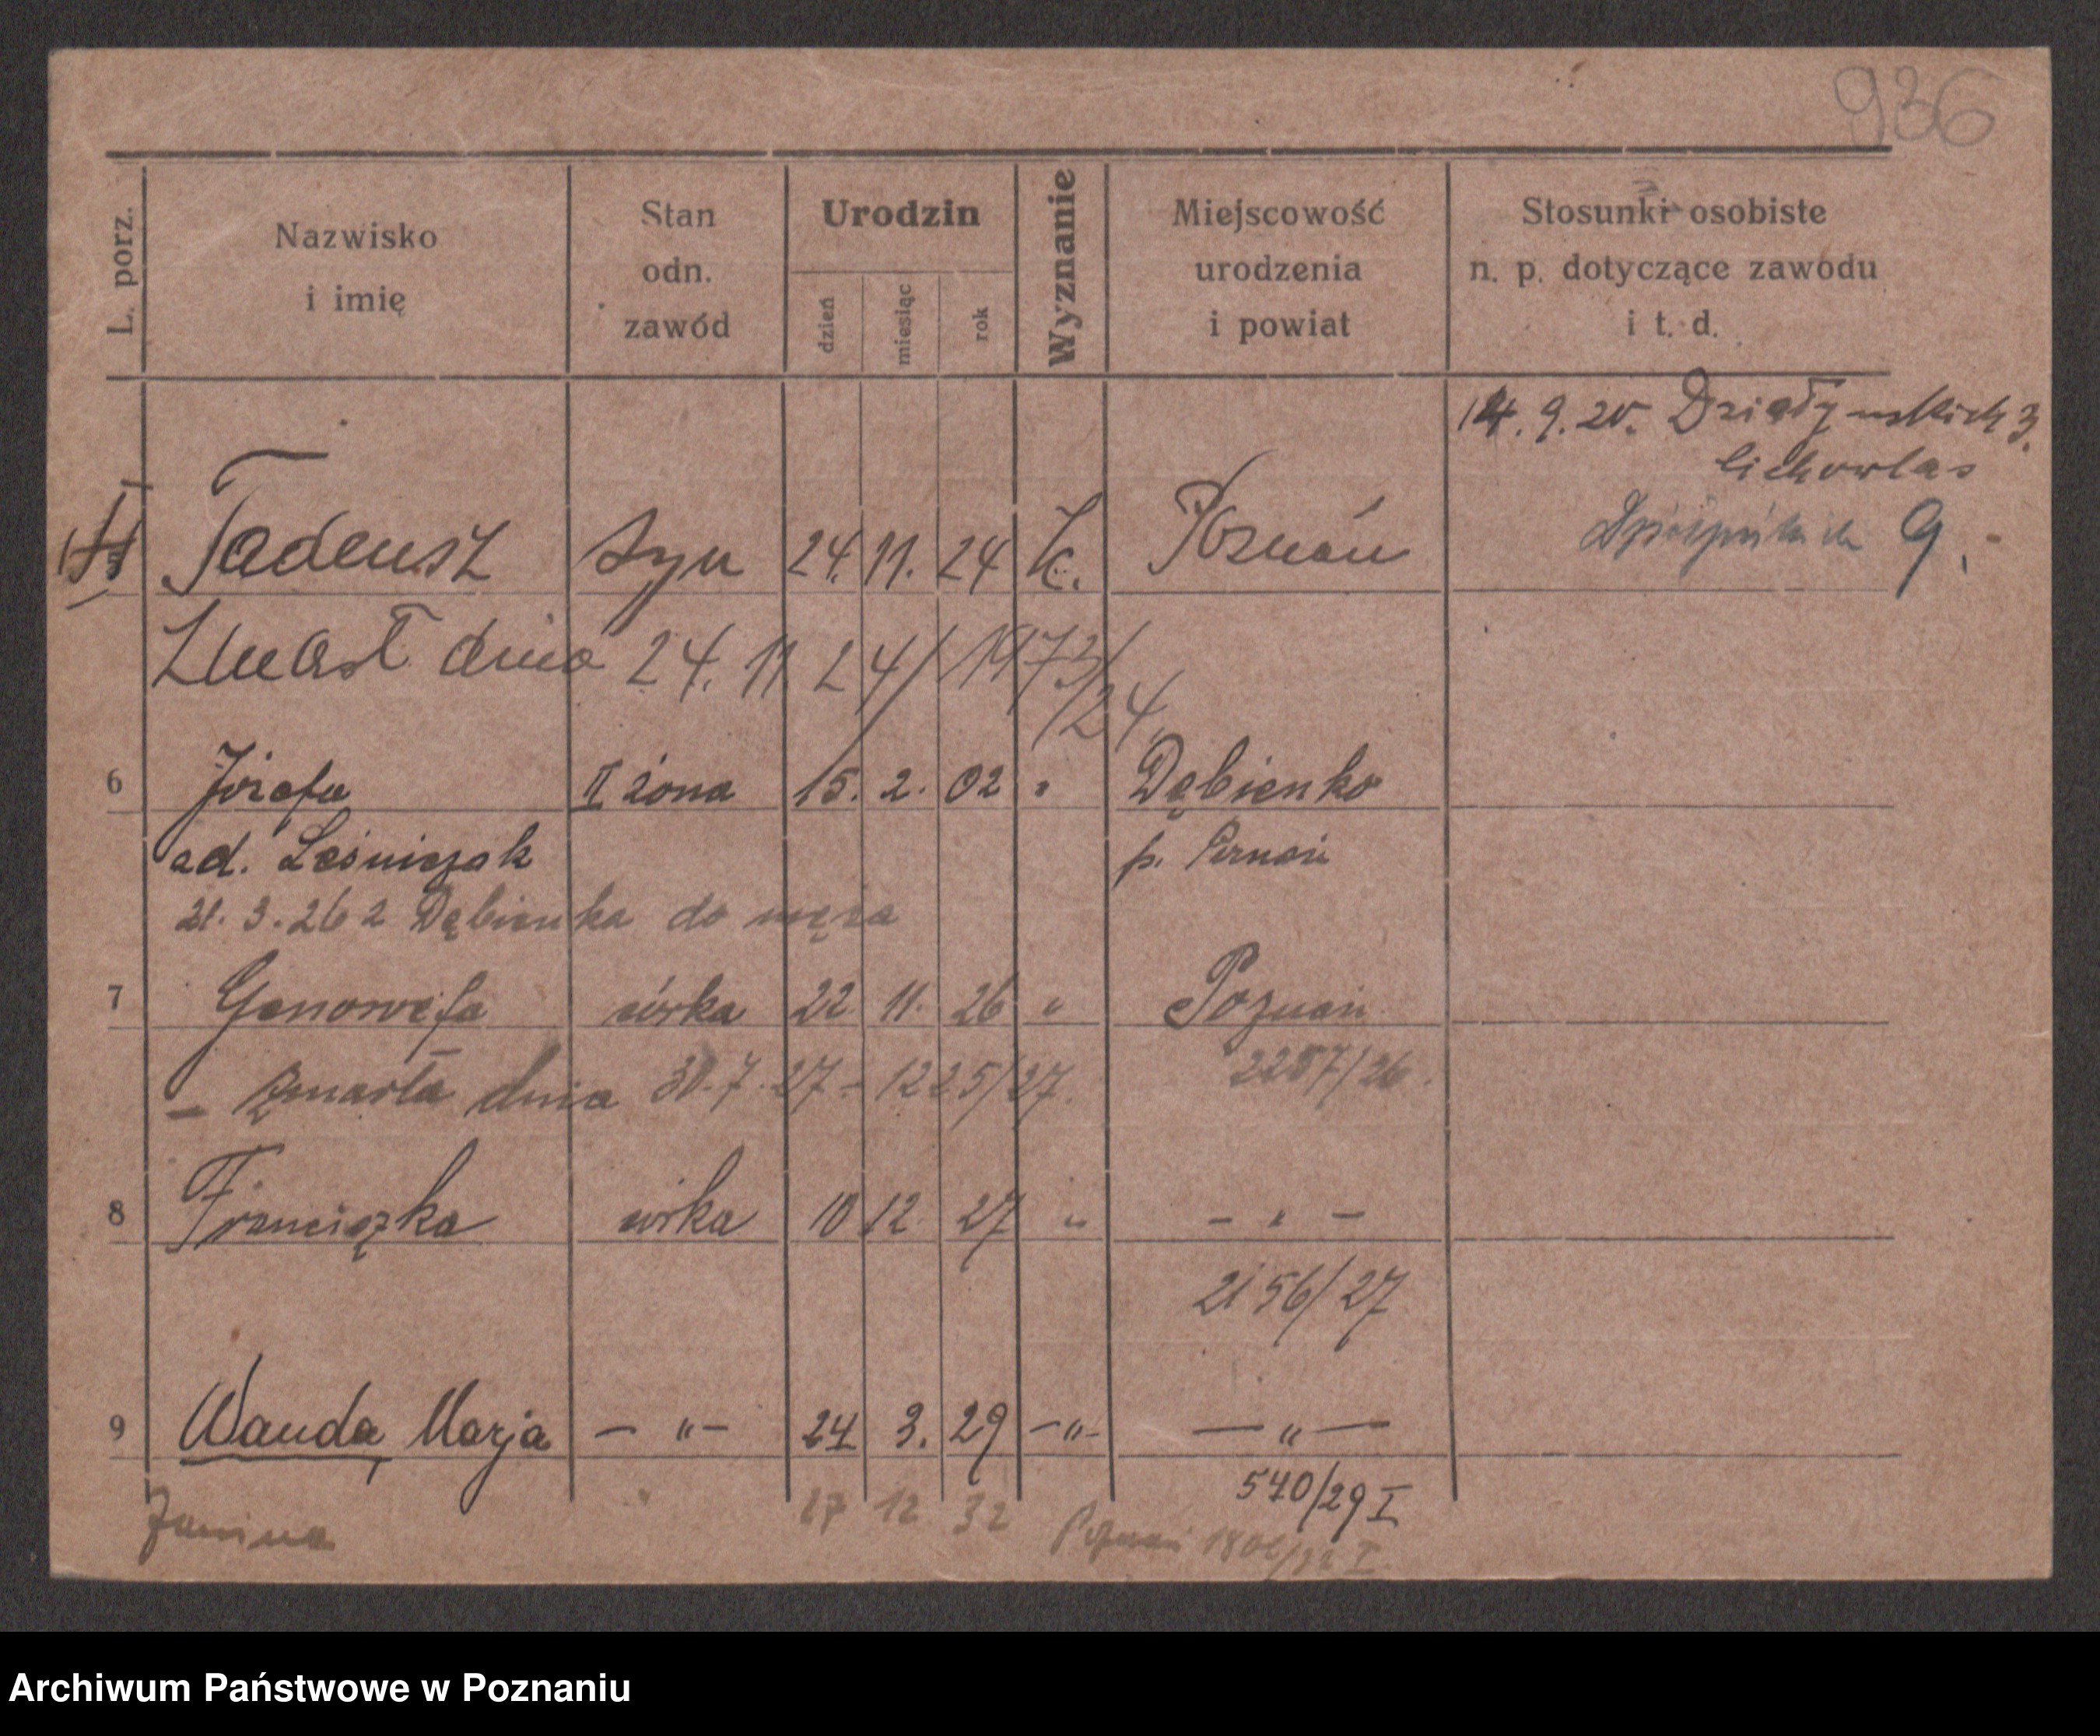 936
L. porz.
Nazwisko i imię
Stan odn. zawód
Urodzin
dzień miesiąc rok
Wyznanie
Miejscowość urodzenia i powiat
Stosunki osobiste n. p. dotyczące zawodu i t. d.
14. 9. 25. Działyńskich 3.
Cichowlas
Działyńskich 9.
Tadeusz syn 24. 11. 24 k. Poznań
Zmarł dnia 24. 11 24/ 1973/24.
6 Józefa II żona 15. 2. 02 " Dąbienko
od. Leśniczak p. Poznań
21. 3. 26 z Dębienka do męża
7 Genowefa córka 22 11. 26 " Poznań
2257/26.
– zmarła dnia 30. 7. 27 – 1225/27.
8 Franciszka córka 10 12 27 " – " –
2156/27
9 Wanda, Marja – " – 24 3. 29 – " – – " –
540/29 I
Janina 27 12 32 Poznań I